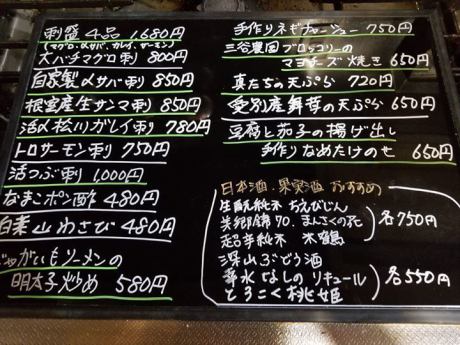 刺盛 4品 1,680円
(マグロ、〆サバ、カレイ、サーモン)
大バチマグロ刺 800円
自家製〆サバ刺 850円
根室産生サンマ刺 850円
活〆松川ガレイ刺 780円
トロサーモン刺 750円
活つぶ刺 1,000円
なまこポン酢 480円
白素山わさび 480円
じゃがいもソーメンの
明太子炒め 580円
手作りネギチャーシュー 750円
三谷農園ブロッコリーの
マヨチーズ焼き 650円
真たちの天ぷら 720円
愛別産舞茸の天ぷら 650円
豆腐と茄子の揚げ出し
手作りなめたけのせ 650円
日本酒、果実酒 おすすめ
生酛純米 おえびじん
美郷錦70、まんさくの花
超辛純米 木鶏
各750円
深山ぶどう酒
幸水なしのリキュール
とろこく桃姫
各550円